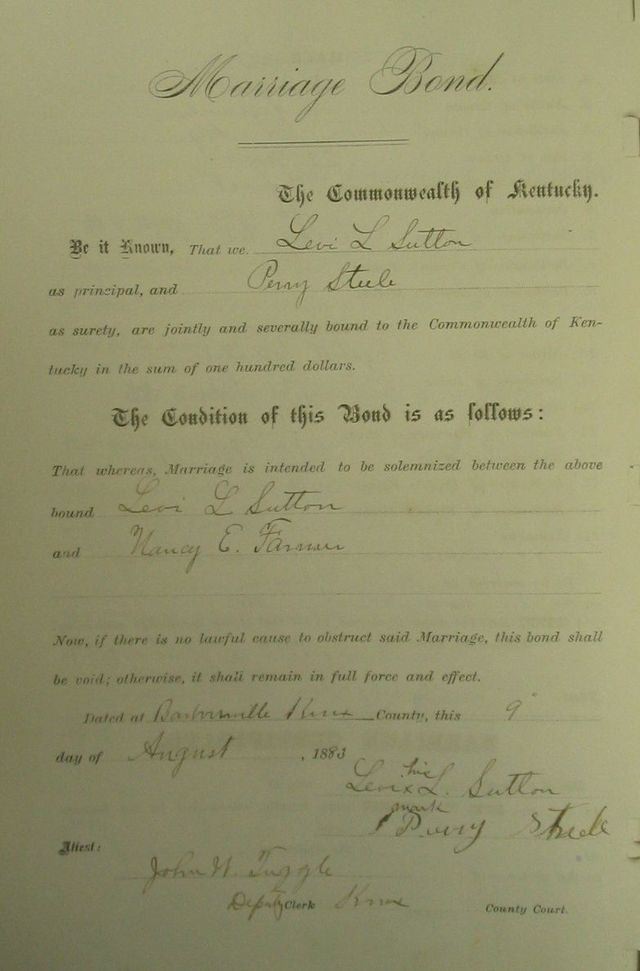 Marriage Bond.
The Commonwealth of Kentucky.
Be it Known, That we Levi L Sutton
as principal, and Perry Steele
as surety, are jointly and severally bound to the Commonwealth of Ken-
tucky in the sum of one hundred dollars.
The Condition of this Bond is as follows:
That whereas, Marriage is intended to be solemnized between the above
bound Levi L Sutton
and Nancy E. Farmer
Now, if there is no lawful cause to obstruct said Marriage, this bond shall
be void; otherwise, it shall remain in full force and effect.
Dated at Barbourville Knox County, this 9"
day of August, 1883
his
Levi x L. Sutton
mark
Perry Steele
Attest:
John W. Tuggle
Deputy Clerk Knox County Court.